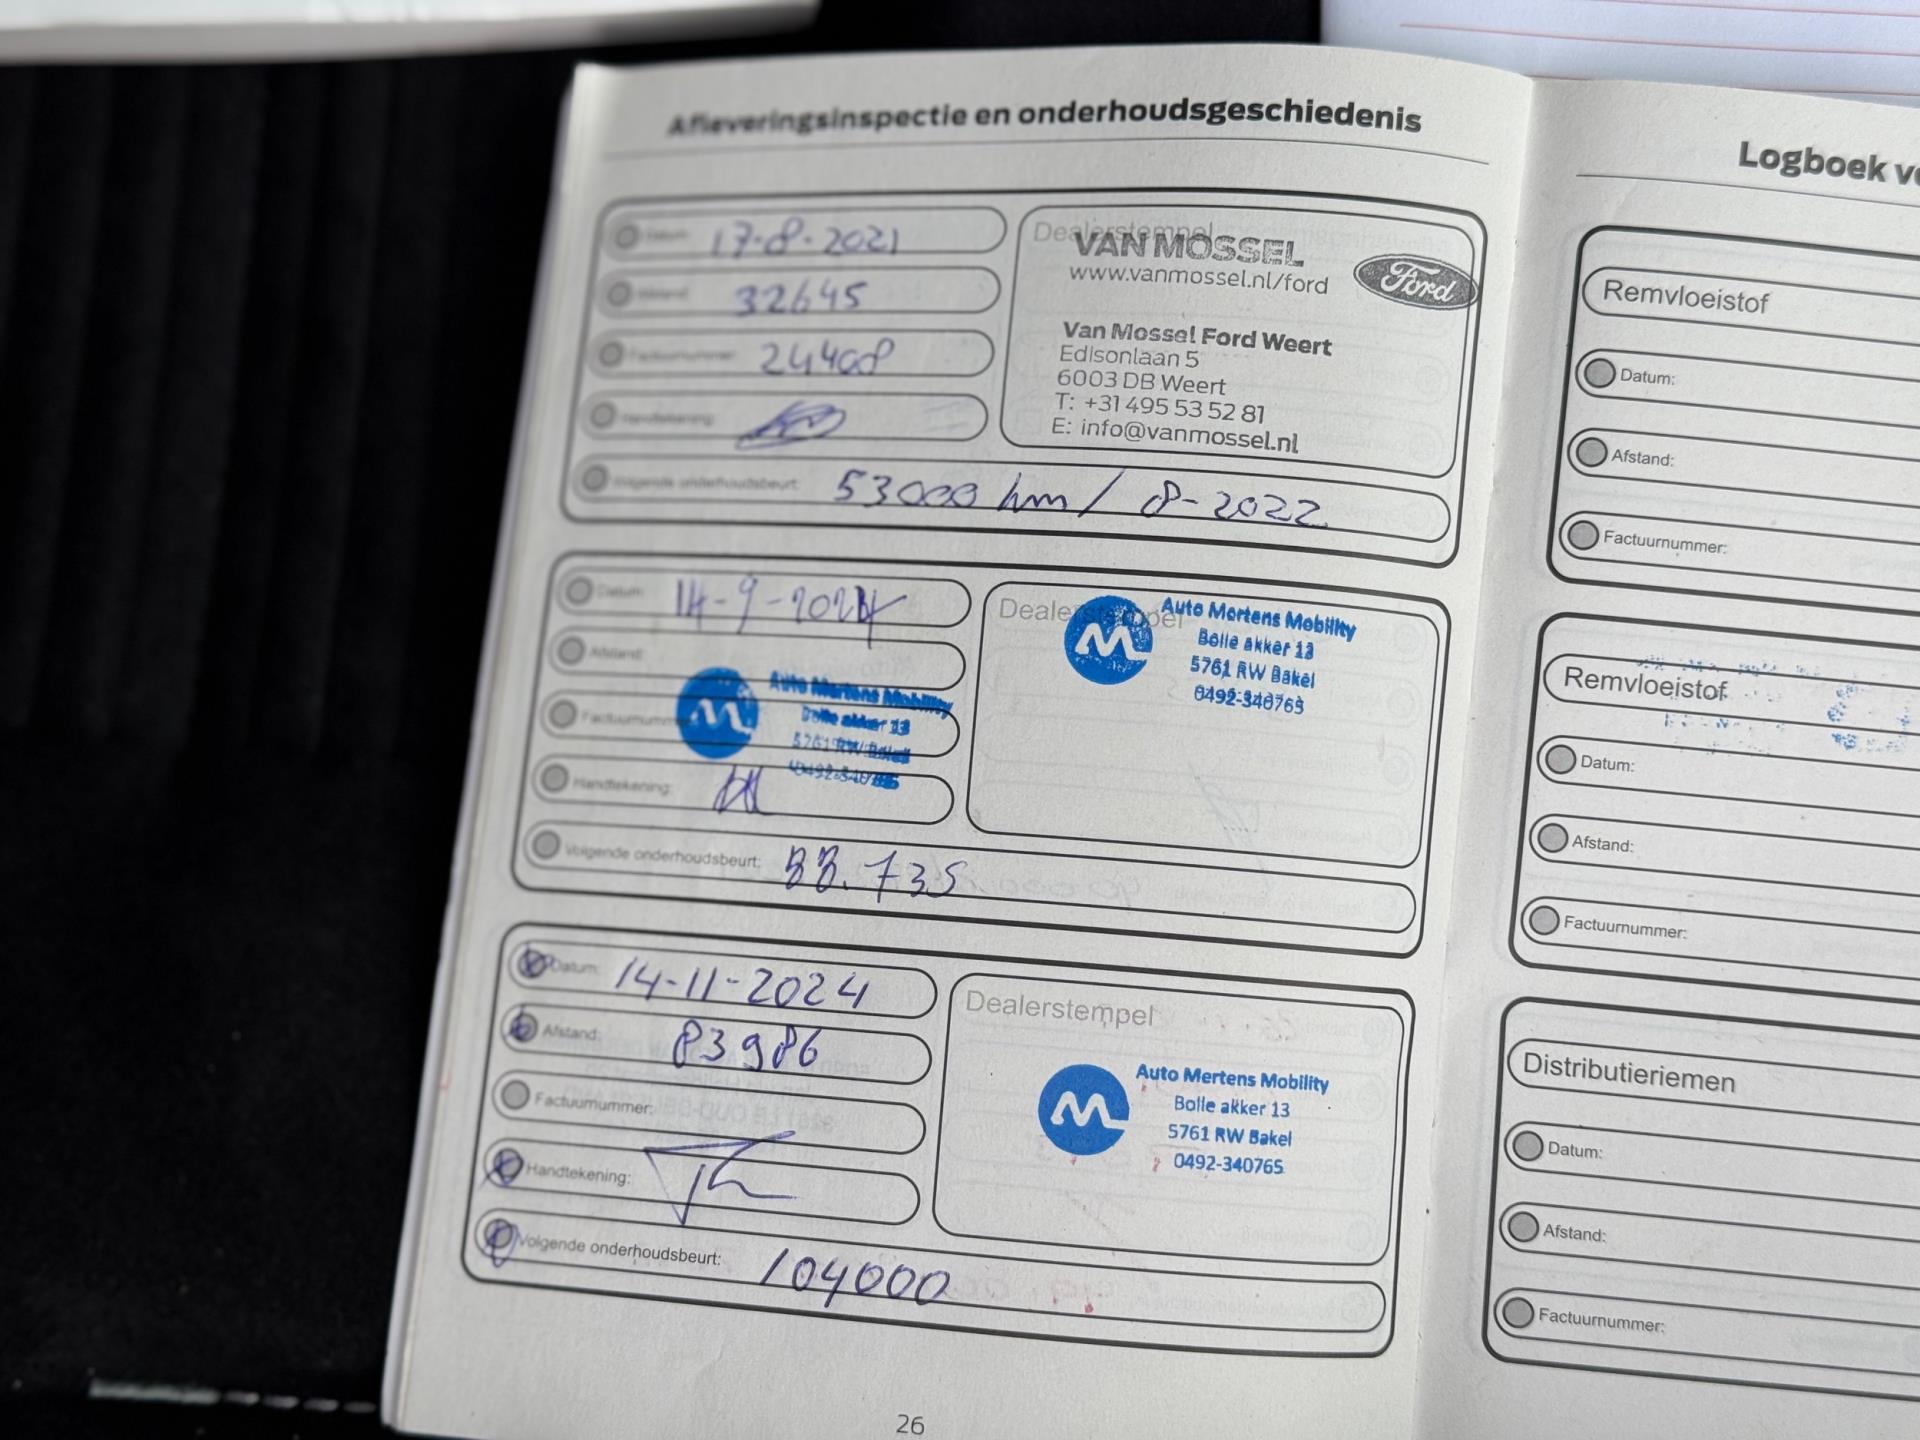 Afleveringsinspectie en onderhoudsgeschiedenis
Datum: 17-8-2021
Afstand: 32645
Factuurnummer: 24408
Handtekening:
Dealerstempel
VAN MOSSEL
www.vanmossel.nl/ford
Ford
Van Mossel Ford Weert
Edisonlaan 5
6003 DB Weert
T: +31 495 53 52 81
E: info@vanmossel.nl
Volgende onderhoudsbeurt: 53000 km / 8-2022
Datum: 14-9-
Afstand:
Factuurnummer:
Auto Mertens Mobility
Bolle akker 13
5761 RW Bakel
Handtekening:
Dealerstempel
Auto Mertens Mobility
Bolle akker 13
5761 RW Bakel
0492-340765
Volgende onderhoudsbeurt: 88.735
Datum: 14-11-2024
Afstand: 83986
Factuurnummer:
Handtekening:
Dealerstempel
Auto Mertens Mobility
Bolle akker 13
5761 RW Bakel
0492-340765
Volgende onderhoudsbeurt: 104000
26
Logboek
Remvloeistof
Datum:
Afstand:
Factuurnummer:
Remvloeistof
Datum:
Afstand:
Factuurnummer:
Distributieriemen
Datum:
Afstand:
Factuurnummer: